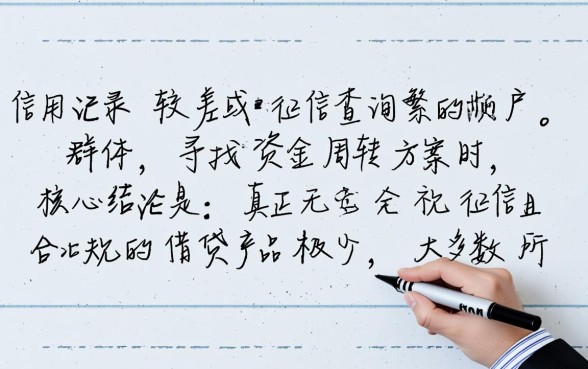 信用记录 较差或 征信查询繁的频户。
群体，寻找资金周转方案时，
核心结论是：真正无 征信且
合 规的借贷产品极少，大多数所